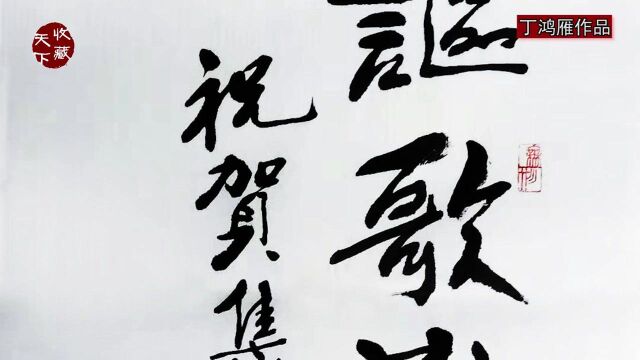 收藏
天下
丁鸿雁作品
謳歌
祝賀集